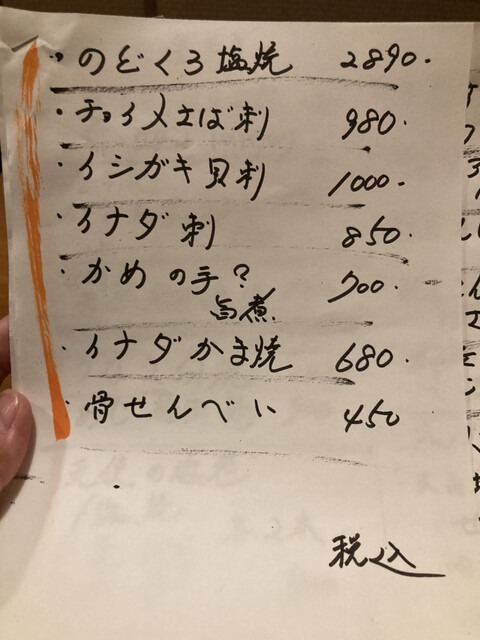 ・のどくろ塩焼 2890.
・チョイ〆さば刺 980.
・イシガキ貝刺 1000.
・イナダ刺 850.
・かめの手? 700.
旨煮
・イナダかま焼 680.
・骨せんべい 450
税込